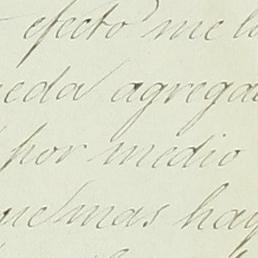 efecto me lo
ueda agrega
por medio
que mas hay